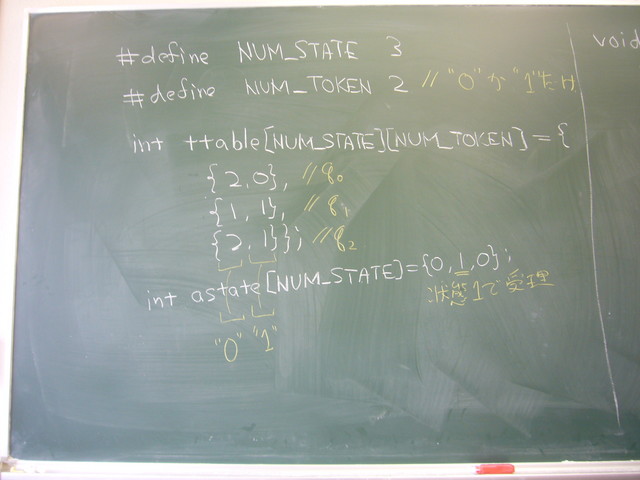 #define NUM_STATE 3
#define NUM_TOKEN 2 // "0"か"1"だけ
int ttable[NUM_STATE][NUM_TOKEN] = {
{2,0}, // q0
{1,1}, // q1
{2,1}}; // q2
int astate[NUM_STATE]={0,1,0};
状態1で受理
"0" "1"
void